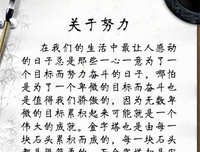 关于努力
在我们的生活中最让人感动
的日子总是那些一心一意为了一
个目标而努力奋斗的日子，哪怕
是为了一个卑微的目标而奋斗也
是值得我们骄傲的，因为无数卑
微的目标累积起来可能就是一个
伟大的成就。金字塔也是由每一
块石头累积而成的，每一块石头